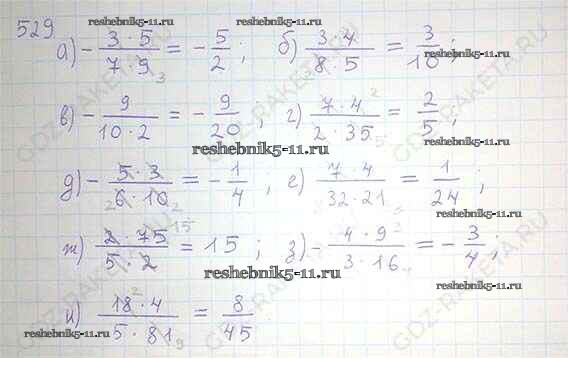 529
reshebnik5-11.ru reshebnik5-11.ru
а) - 3·5/7·9 3 = - 5/2; б) 3·4/8·5 = 3/10;
в) - 9/10·2 = - 9/20; г) 7·4 2/2·35 5 = 2/5;
reshebnik5-11.ru reshebnik5-11.ru
д) - 5·3/6·10 2 2 = - 1/4; г) 7·4/32·21 = 1/24;
reshebnik5-11.ru
ж) 2·75 15/5·2 = 15; з) - 4·9/3·16 = - 3/4;
reshebnik5-11.ru
и) 18 2·4/5·81 9 = 8/45
reshebnik5-11.ru reshebnik5-11.ru
GDZ-RAKETA.RU